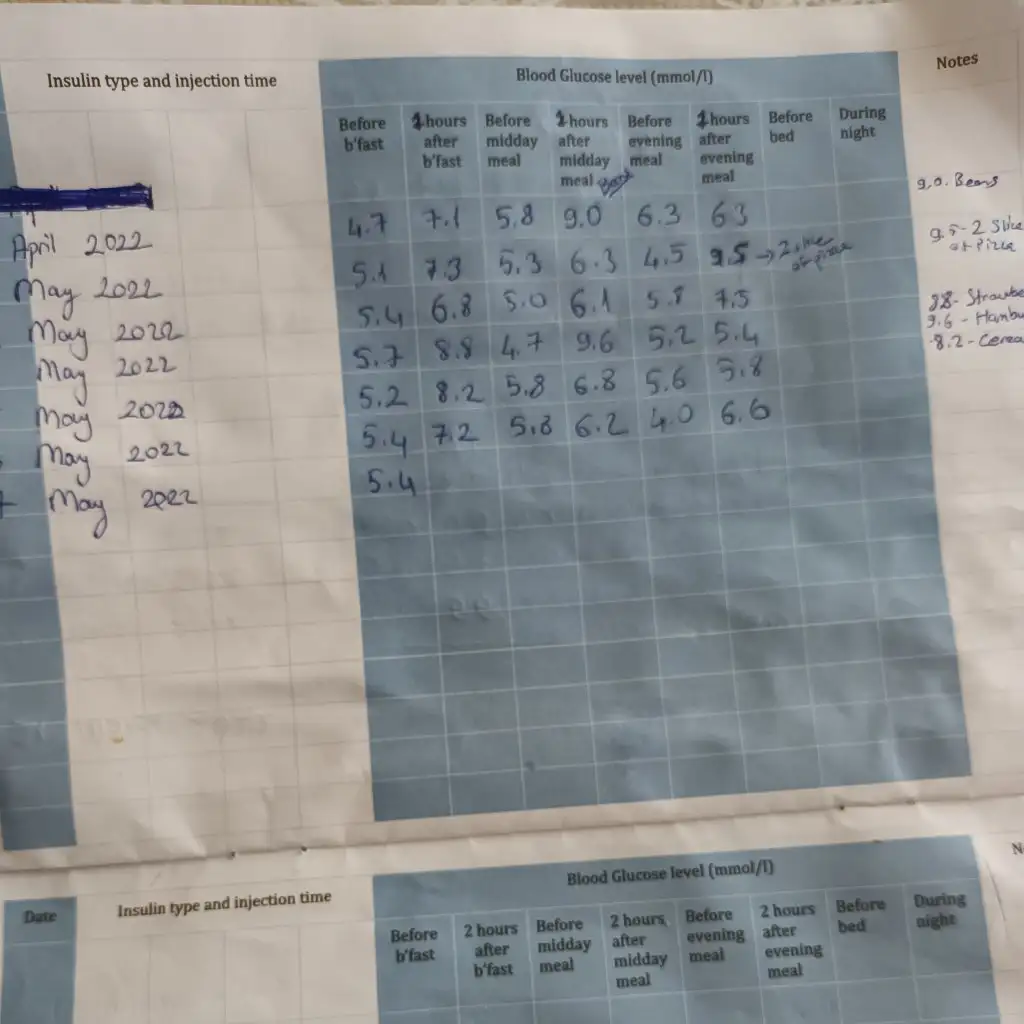 Insulin type and injection time
Blood Glucose level (mmol/l)
Notes
Before b'fast
1 hours after b'fast
Before midday meal
1 hours after midday meal
Before evening meal
1 hours after evening meal
Before bed
During night
9.0. Beans
4.7 7.1 5.8 9.0 6.3 6.3
April 2022
5.1 7.3 5.3 6.3 4.5 9.5 → 2 slice of pizza
9.5 - 2 Slice
of Pizza
May 2022
5.4 6.8 5.0 6.1 5.8 7.5
8.8 - Strawbe
May 2022
5.7 8.8 4.7 9.6 5.2 5.4
9.6 - Hambu
May 2022
5.2 8.2 5.8 6.8 5.6 5.8
8.2 - Cerea
May 2022
5.4 7.2 5.8 6.2 4.0 6.6
May 2022
5.4
May 2022
Date
Insulin type and injection time
Blood Glucose level (mmol/l)
N
Before b'fast
2 hours after b'fast
Before midday meal
2 hours after midday meal
Before evening meal
2 hours after evening meal
Before bed
During night